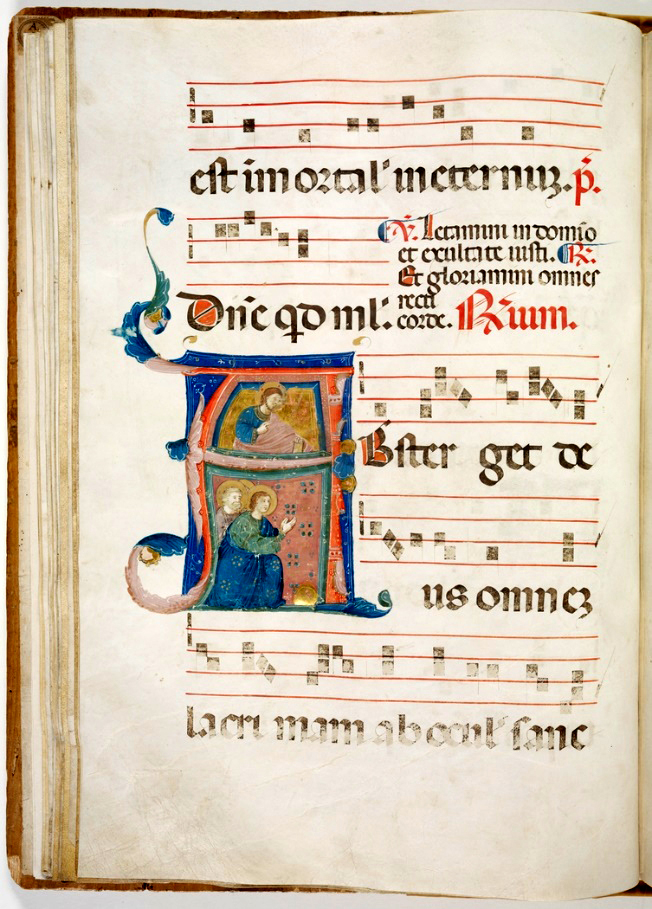 est im ortal' in eternuz. p̃.
V̉. Letamini in domio
et exultate iusti. R̃.
Et gloriamini omnes
recti
Dn̄e qd ml'. corde. R̃ium.
ABster get de
us omnez
lacri mam ab ocul' sanc